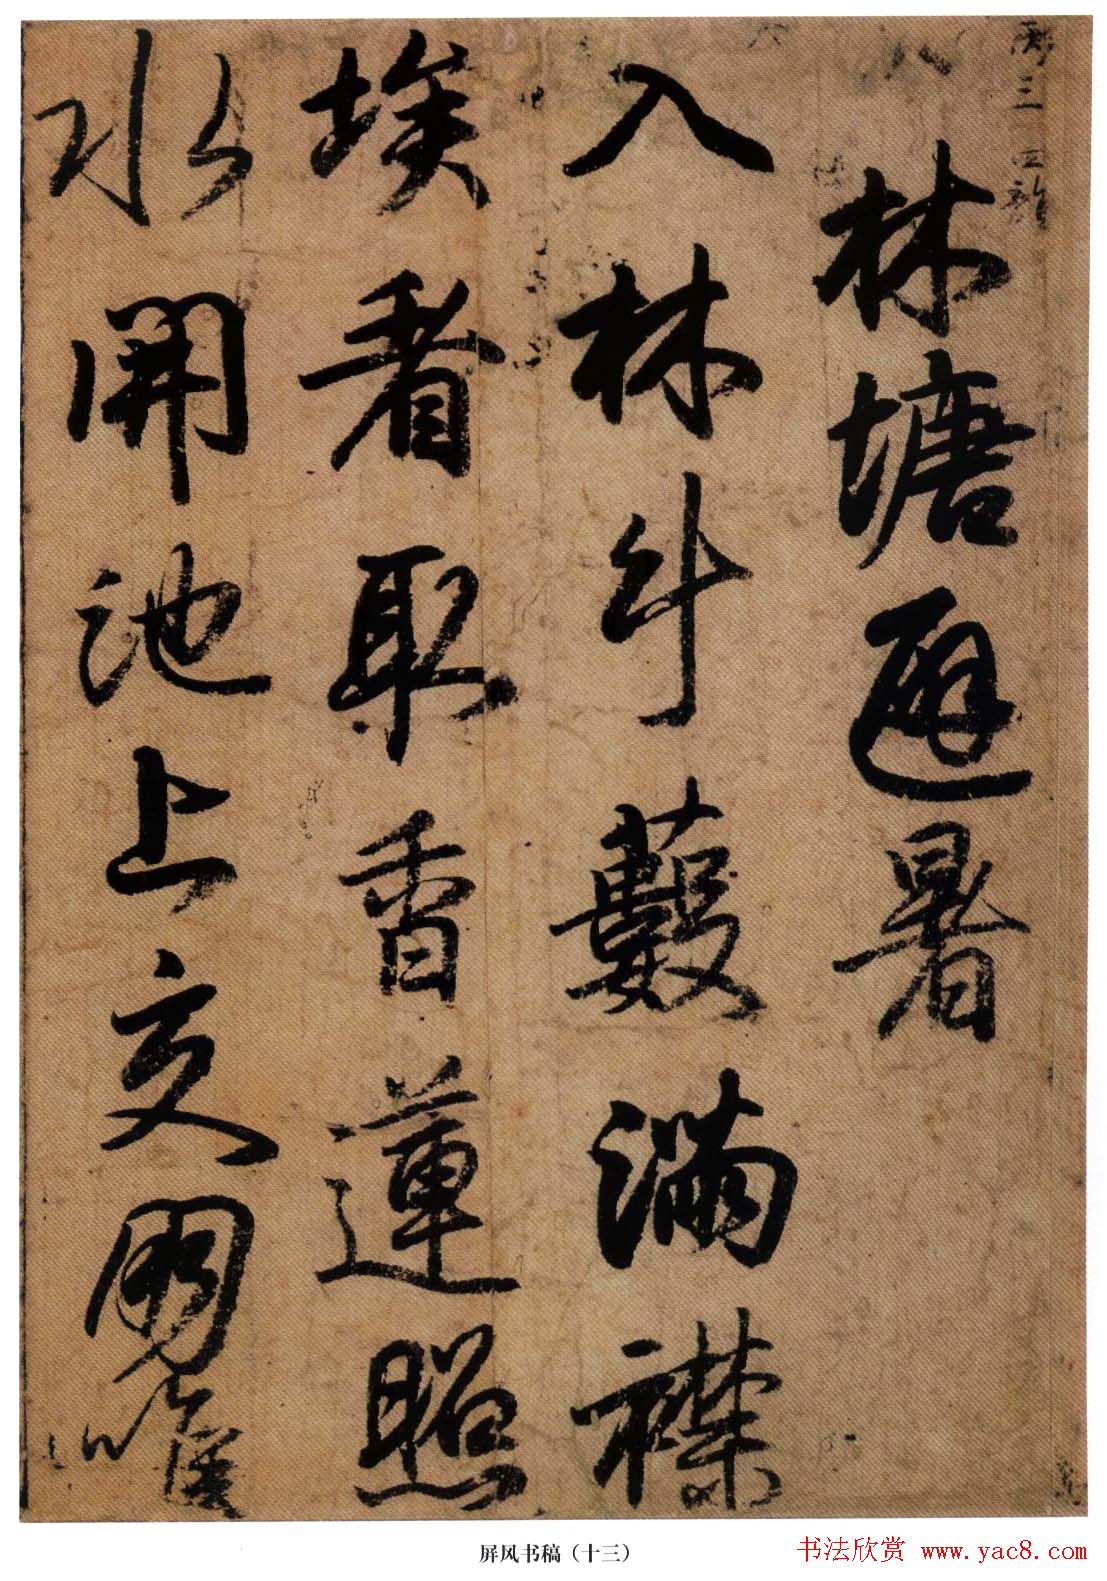 三 四韻
林塘避暑
入林斗藪滿襟
埃看取香蓮照
水開池上交朋唯
屏风书稿（十三）
书法欣赏 www.yac8.com